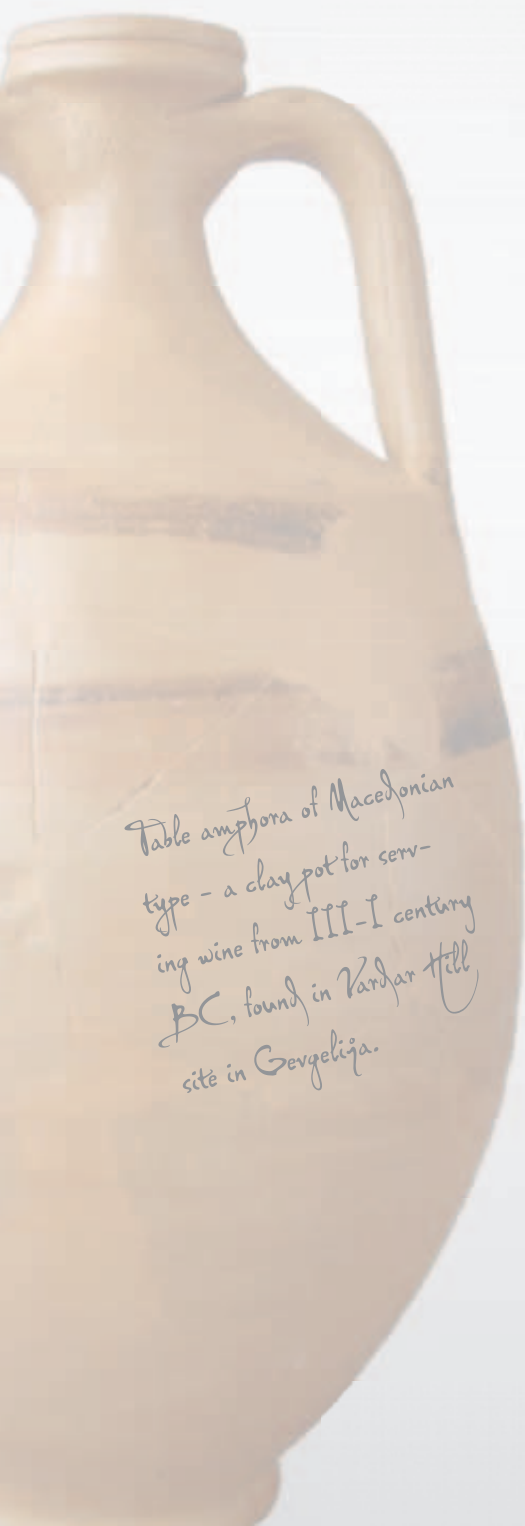 Table amphora of Macedonian
type - a clay pot for serv-
ing wine from III-I century
BC, found in Vardar Hill
site in Gevgelija.